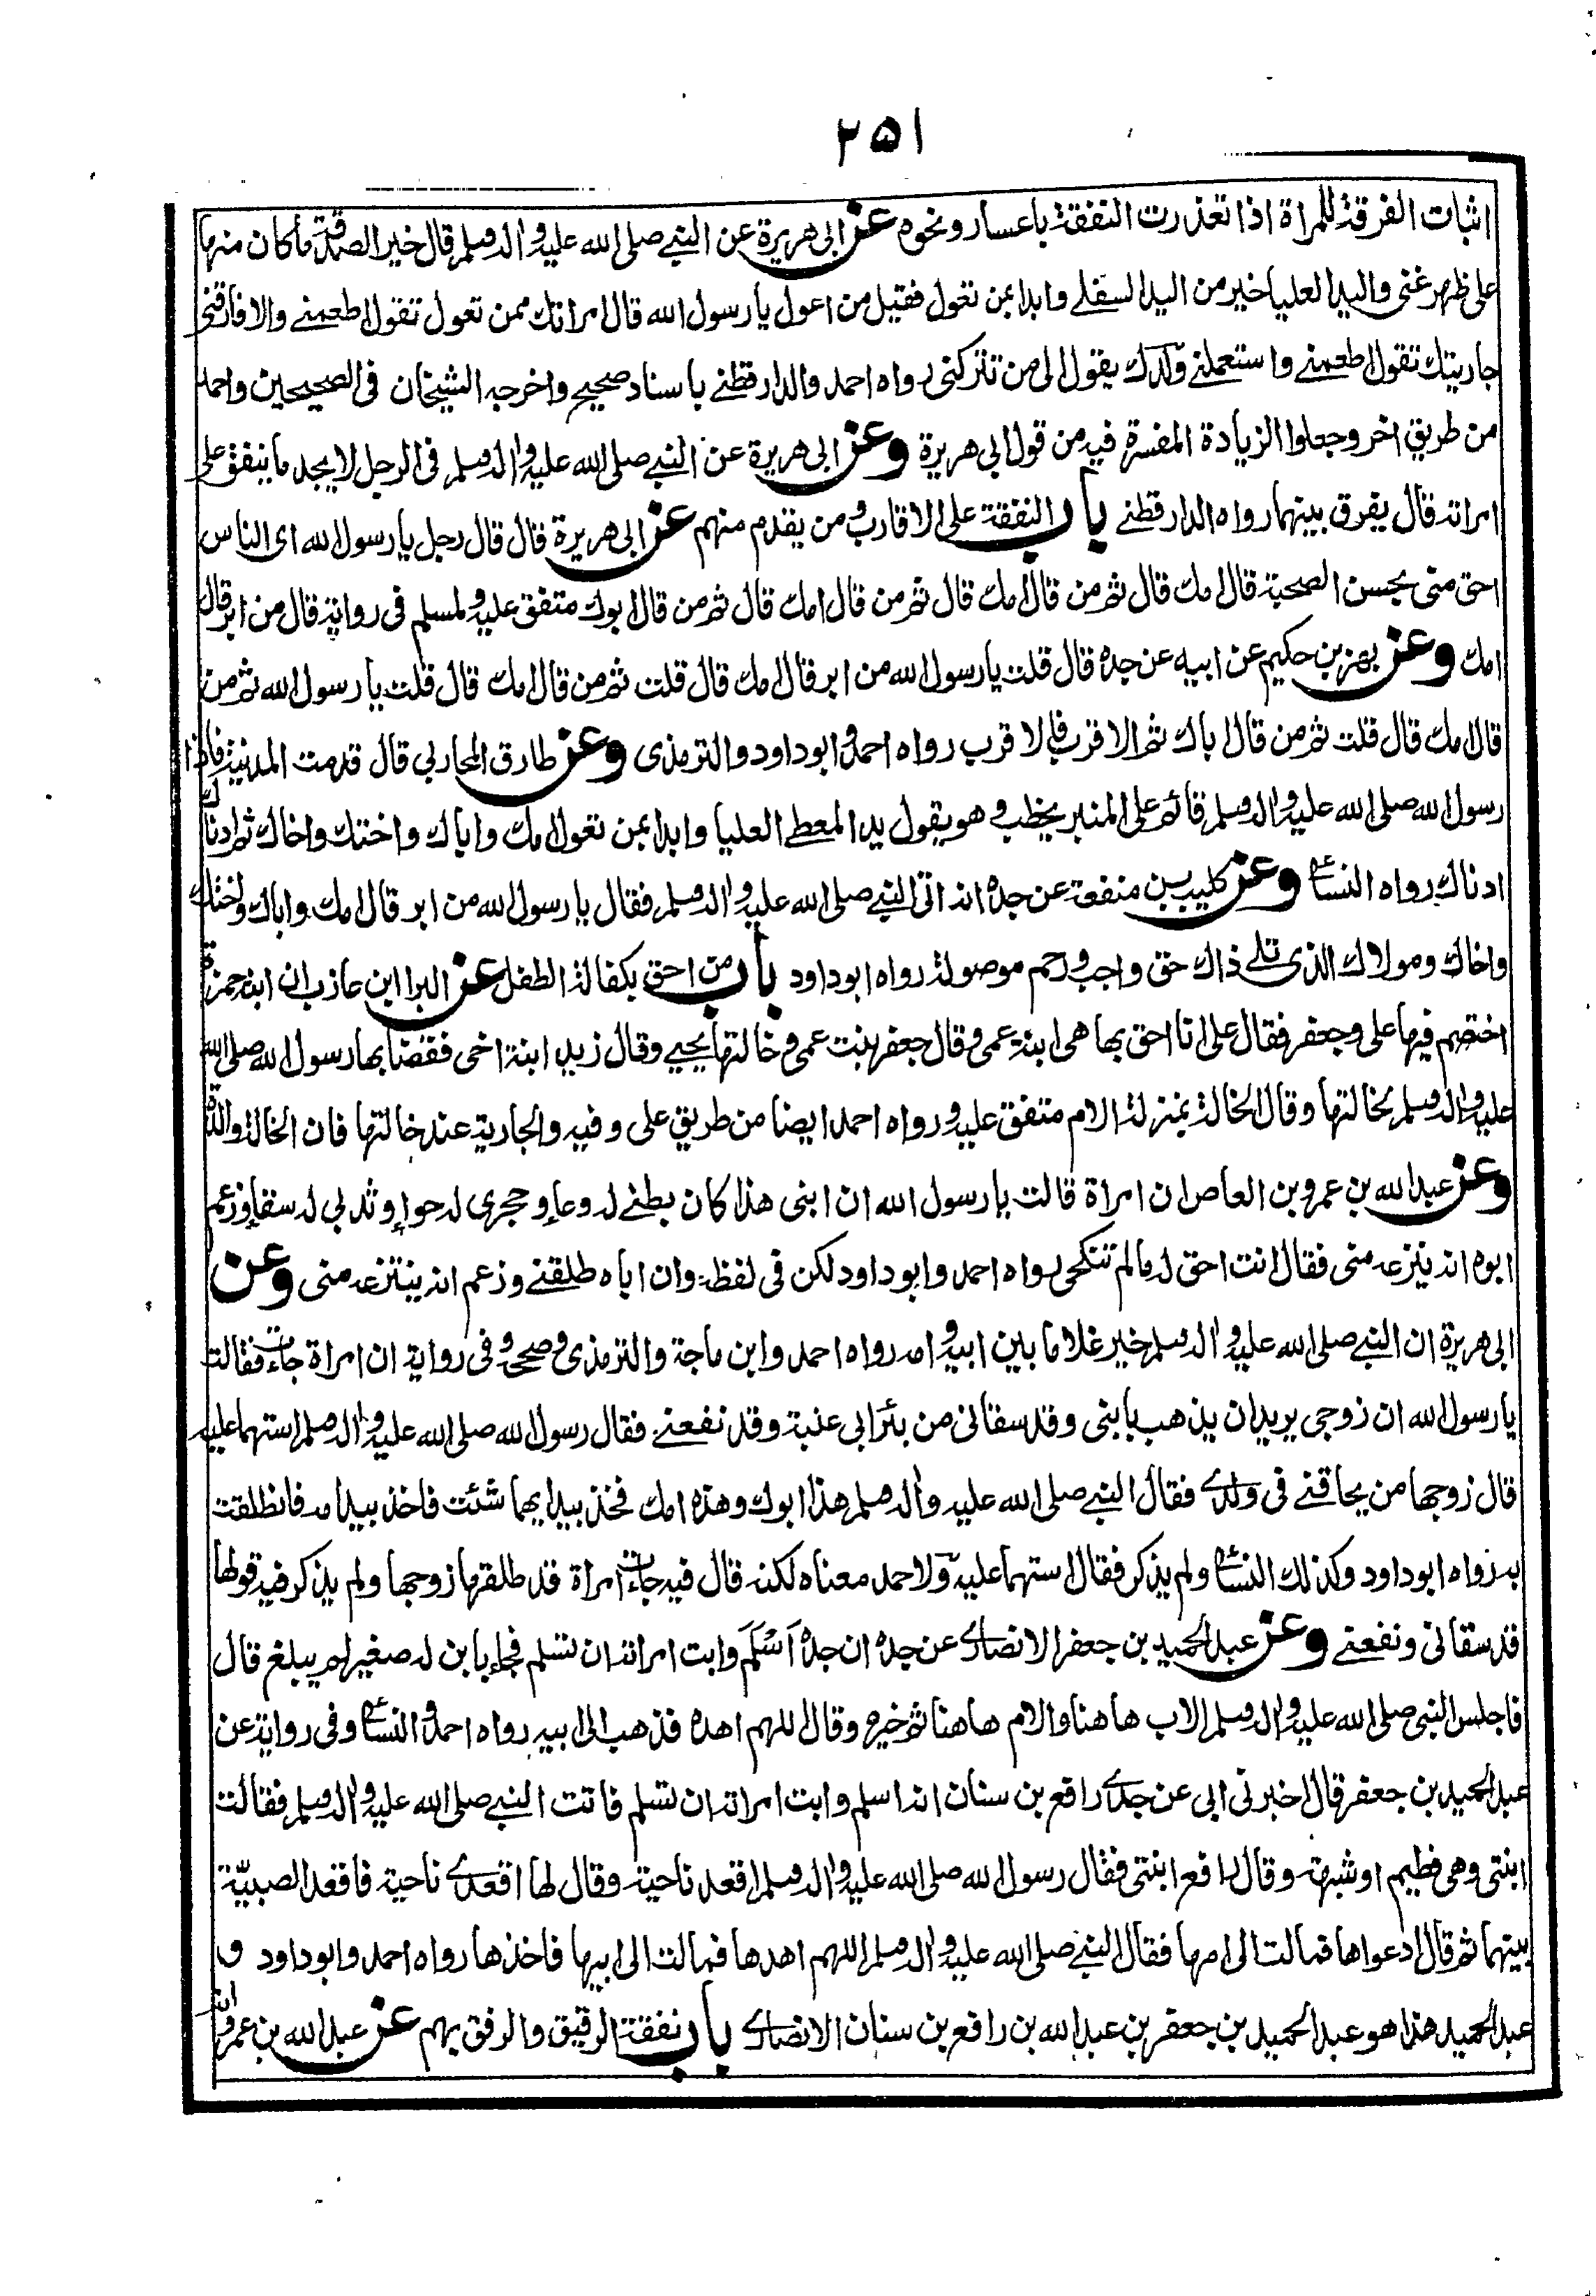 ٢٥١
اثبات الفرقة للمراة اذا تعذرت النفقة باعسار ونحوه عن ابى هريرة عن النبي صلى الله عليه واله وسلم قال خير الصدقة ما كان منها
على ظهر غنى واليد العليا خير من اليد السفلى وابدا بمن تعول فقيل من اعول يا رسول الله قال امراتك ممن تعول تقول اطعمنى والا فارقنى
جاريتك تقول اطعمنى واستعملنى وولدك يقول الى من تتركنى رواه احمد والدارقطنى باسناد صحيح واخرجه الشيخان فى الصحيحين واحمد
من طريق اخر وجعلوا الزيادة المفسرة فيه من قول ابى هريرة وعن ابى هريرة عن النبي صلى الله عليه واله وسلم فى الرجل لا يجد ما ينفق على
امراته قال يفرق بينهما رواه الدارقطنى باب النفقة على الاقارب ومن يقدم منهم عن ابى هريرة قال قال رجل يا رسول الله اى الناس
احق منى بحسن الصحبة قال امك قال ثم من قال امك قال ثم من قال امك قال ثم من قال ابوك متفق عليه ولمسلم فى رواية قال من ابر قال
امك وعن بهز بن حكيم عن ابيه عن جده قال قلت يا رسول الله من ابر قال امك قال قلت ثم من قال امك قال قلت يا رسول الله ثم من
قال امك قال قلت ثم من قال اباك ثم الاقرب فالاقرب رواه احمد وابو داود والترمذى وعن طارق المحاربى قال قدمت المدينة فاذا
رسول الله صلى الله عليه واله وسلم قائم على المنبر يخطب وهو يقول يد المعطى العليا وابدا بمن تعول امك واباك واختك واخاك ثم ادناك
ادناك رواه النسائى وعن كليب بن منفعة عن جده انه اتى النبي صلى الله عليه واله وسلم فقال يا رسول الله من ابر قال امك واباك واختك
واخاك ومولاك الذى تلى ذاك حق واجب ورحم موصولة رواه ابو داود باب من احق بكفالة الطفل عن البرا ابن عازب ان ابنة حمزة
اختصم فيها على وجعفر فقال على انا احق بها هى ابنة عمى وقال جعفر بنت عمى وخالتها يحيى وقال زيد ابنة اخى فقضا بها رسول الله صلى الله
عليه واله وسلم لخالتها وقال الخالة بمنزلة الام متفق عليه ورواه احمد ايضا من طريق على وفيه والجارية عند خالتها فان الخالة والدة
وعن عبد الله بن عمرو بن العاص ان امراة قالت يا رسول الله ان ابنى هذا كان بطنى له وعاء وحجرى له حواء وثدىى له سقاء وزعم
ابوه انه ينزعه منى فقال انت احق له ما لم تنكحى رواه احمد وابو داود لكن فى لفظه وان اباه طلقنى وزعم انه ينتزعه منى وعن
ابى هريرة ان النبي صلى الله عليه واله وسلم خير غلاما بين ابيه وامه رواه احمد وابن ماجة والترمذى وصححه وفى رواية ان امراة جاءت فقالت
يا رسول الله ان زوجى يريد ان يذهب بابنى وقد سقانى من بئر ابى عنبة وقد نفعنى فقال رسول الله صلى الله عليه واله وسلم استهما عليه
قال زوجها من يحاقنى فى ولدى فقال النبي صلى الله عليه واله وسلم هذا ابوك وهذه امك فخذ بيد ايهما شئت فاخذ بيد امه فانطلقت
به رواه ابو داود وكذلك النسائى ولم يذكر فقال استهما عليه ولاحمد معناه لكنه قال فيه جاءت امراة قد طلقها زوجها ولم يذكر فيه قولها
قد سقانى ونفعنى وعن عبد الحميد بن جعفر الانصارى عن جده ان جده اسلم وابت امراته ان تسلم فجاء بابن له صغير لم يبلغ قال
فاجلس النبى صلى الله عليه واله وسلم الاب هاهنا والام هاهنا ثم خيره وقال اللهم اهده فذهب الى ابيه رواه احمد والنسائى وفى رواية عن
عبد الحميد بن جعفر قال اخبرنى ابى عن جدى رافع بن سنان انه اسلم وابت امراته ان تسلم فاتت النبي صلى الله عليه واله وسلم فقالت
ابنتى وهى فطيم او شبهه وقال رافع ابنتى فقال رسول الله صلى الله عليه واله وسلم اقعد ناحية وقال لها اقعدى ناحية فاقعد الصبيّة
بينهما ثم قال ادعواها فمالت الى امها فقال النبي صلى الله عليه واله وسلم اللهم اهدها فمالت الى ابيها فاخذها رواه احمد وابو داود و
عبد الحميد هذا هو عبد الحميد بن جعفر بن عبد الله بن رافع بن سنان الانصارى باب نفقة الرقيق والرفق بهم عن عبد الله بن عمرو انه